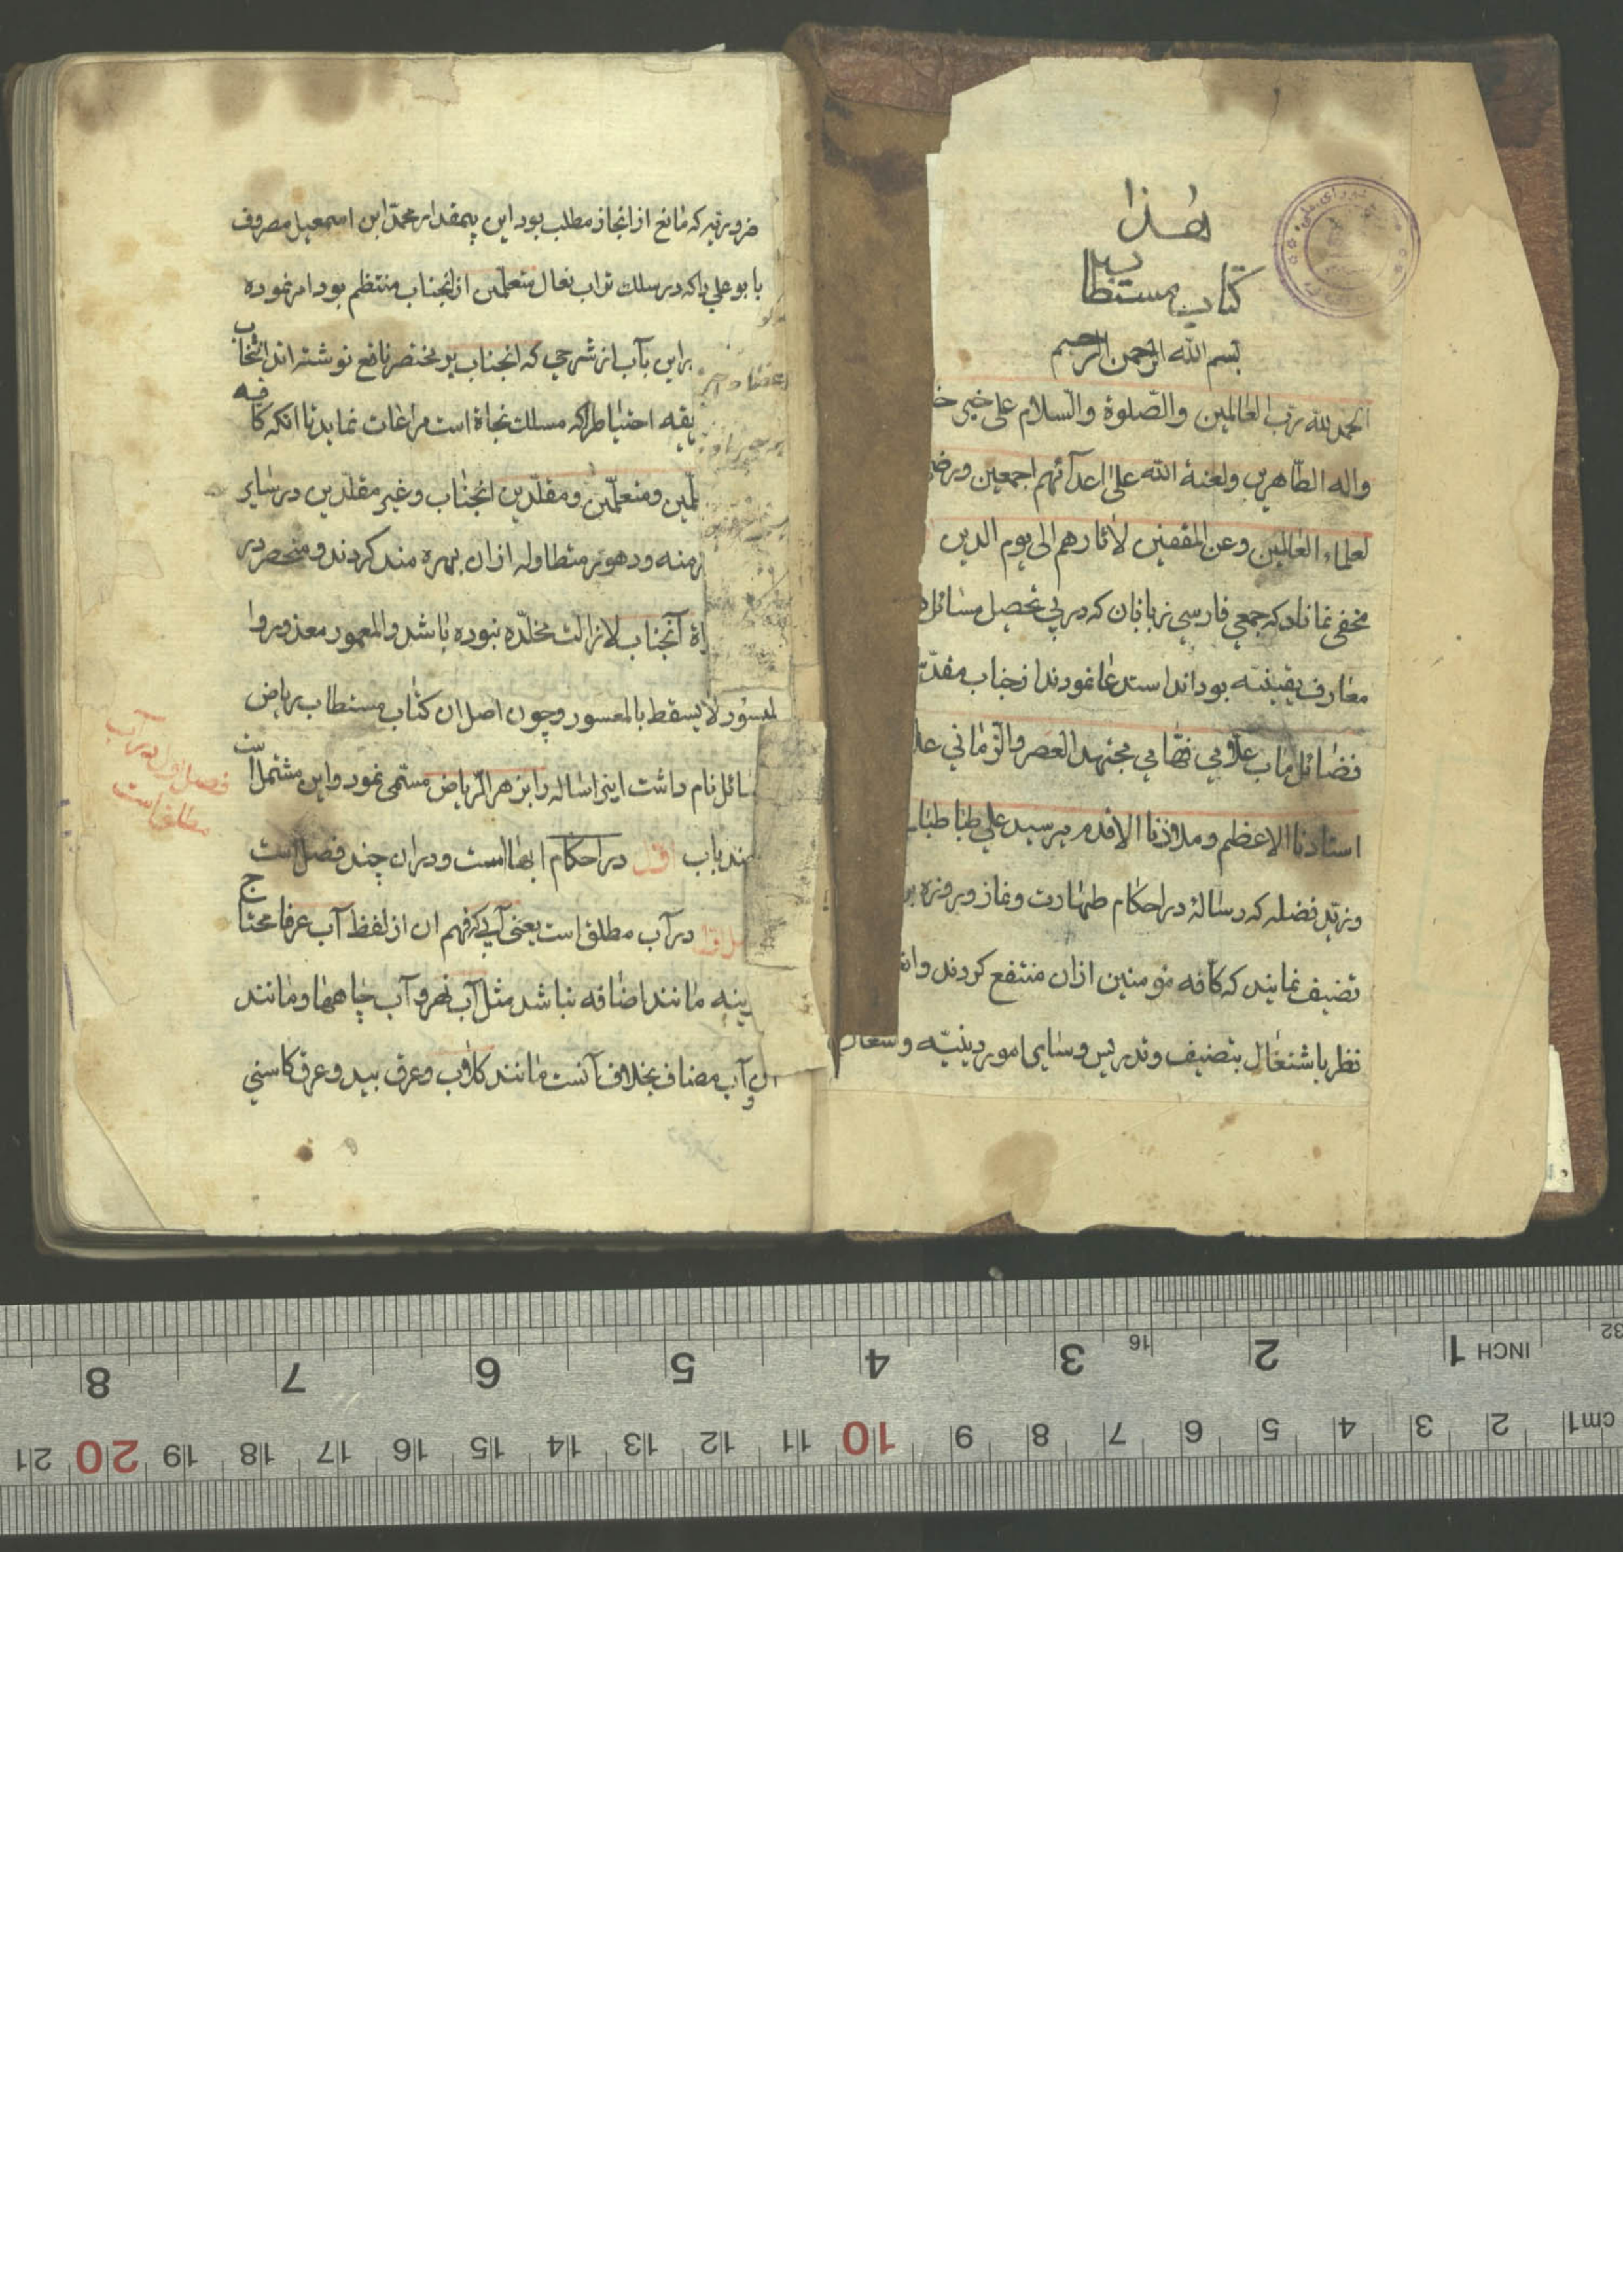 هذا
كتاب مستطاب
بسم الله الرحمن الرحيم
الحمد لله رب العالمين والصلوة والسلام على خير
واله الطاهرين ولعنة الله على اعدآئهم اجمعين
لعلماء العالمين وعن المقفين لاثارهم الى يوم الدين
مخفى نماناد كه جمعى فارسى زبانان كه در پى تحصيل مسائل
معارف يقينيه بودند استدعا نمودند از جناب
فضائل ماب علامى فهامى مجتهد العصر والزمانى
استادنا الاعظم وملاذنا الاقدم مير سيد على طباطبا
وزيد فضله كه رسالهٔ در احكام طهارت ونماز وروزه
تصنيف نمايند كه كافه مؤمنين ازان منتفع كردند
نظر باشتغال بتصنيف وتدريس وساير امور دينيّه
ضروريه كه مانع از انجاز مطلب بود اين بيمقدار محمد ابن اسمعيل معروف
بابو على را كه در سلك تراب نعال متعلمين از انجناب منتظم بود امر نموده
براين بآب از شرحى كه انجناب بر مختصر نافع نوشته اند انتخاب
يقه احتياط را كه مسلك نجاة است مراعات نمايد تا انكه كافه
لمين ومتعلمين ومقلدين انجناب وغير مقلدين در ساير
زمنه ودهور متطاوله ازان بهره مند كردند ومنحصر در
اة آنجناب لا زالت مخلده نبوده باشد والمعمور معذور وا
لميسور لا يسقط بالمعسور وچون اصل ان كتاب مستطاب رياض
سائل نام داشت اينرساله را بزهر الرياض مسمى نمود واين مشتمل است
چند باب اول در احكام ابها است ودران چند فصل است
اول در آب مطلق است يعنى آبى كه فهم ان از لفظ آب عرفا محتاج
رينه مانند اضافه نباشد مثل آب نهر وآب چاهها ومانند
ان وآب مضاف بخلاف آنست مانند كلاب وعرق بيد وعرق كاسنى
فصل اول در آب
مطلق است
INCH 1 2 3 4 5 6 7 8
16
32
cm1 2 3 4 5 6 7 8 9 10 11 12 13 14 15 16 17 18 19 20 21